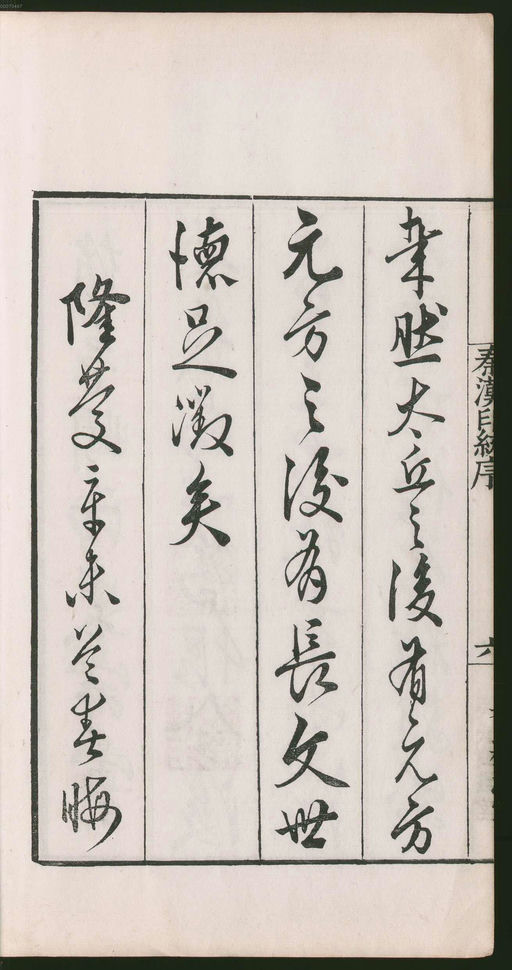 秦漢印統序
六
然太丘之後有元方
元方之後有長文世
德足徵矣
隆慶辛未莫春晦